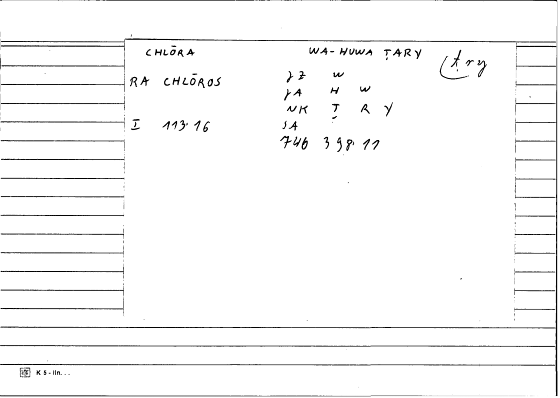 CHLŌRA WA-HUWA ṬARY ṭry
RA CHLŌROS JZ W
JA H W
NK Ṭ R Y
I 113.16 SA
746 398.11
K 5 - lin. . .